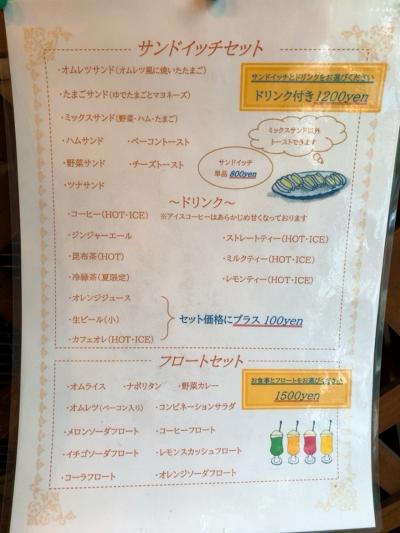 サンドイッチセット
・オムレツサンド(オムレツ風に焼いたたまご)
サンドイッチとドリンクをお選びください
ドリンク付き1200yen
・たまごサンド(ゆでたまごとマヨネーズ)
・ミックスサンド(野菜・ハム・たまご)
ミックスサンド以外
トーストできます
・ハムサンド ・ベーコントースト
・野菜サンド ・チーズトースト
サンドイッチ
単品 800yen
・ツナサンド
~ドリンク~
・コーヒー(HOT・ICE) ※アイスコーヒーはあらかじめ甘くなっております
・ジンジャーエール ・ストレートティー(HOT・ICE)
・昆布茶(HOT) ・ミルクティー(HOT・ICE)
・冷緑茶(夏限定) ・レモンティー(HOT・ICE)
・オレンジジュース
・生ビール(小) セット価格にプラス 100yen
・カフェオレ(HOT・ICE)
フロートセット
お食事とフロートをお選びください
1500yen
・オムライス ・ナポリタン ・野菜カレー
・オムレツ(ベーコン入り) ・コンビネーションサラダ
・メロンソーダフロート ・コーヒーフロート
・イチゴソーダフロート ・レモンスカッシュフロート
・コーラフロート ・オレンジソーダフロート